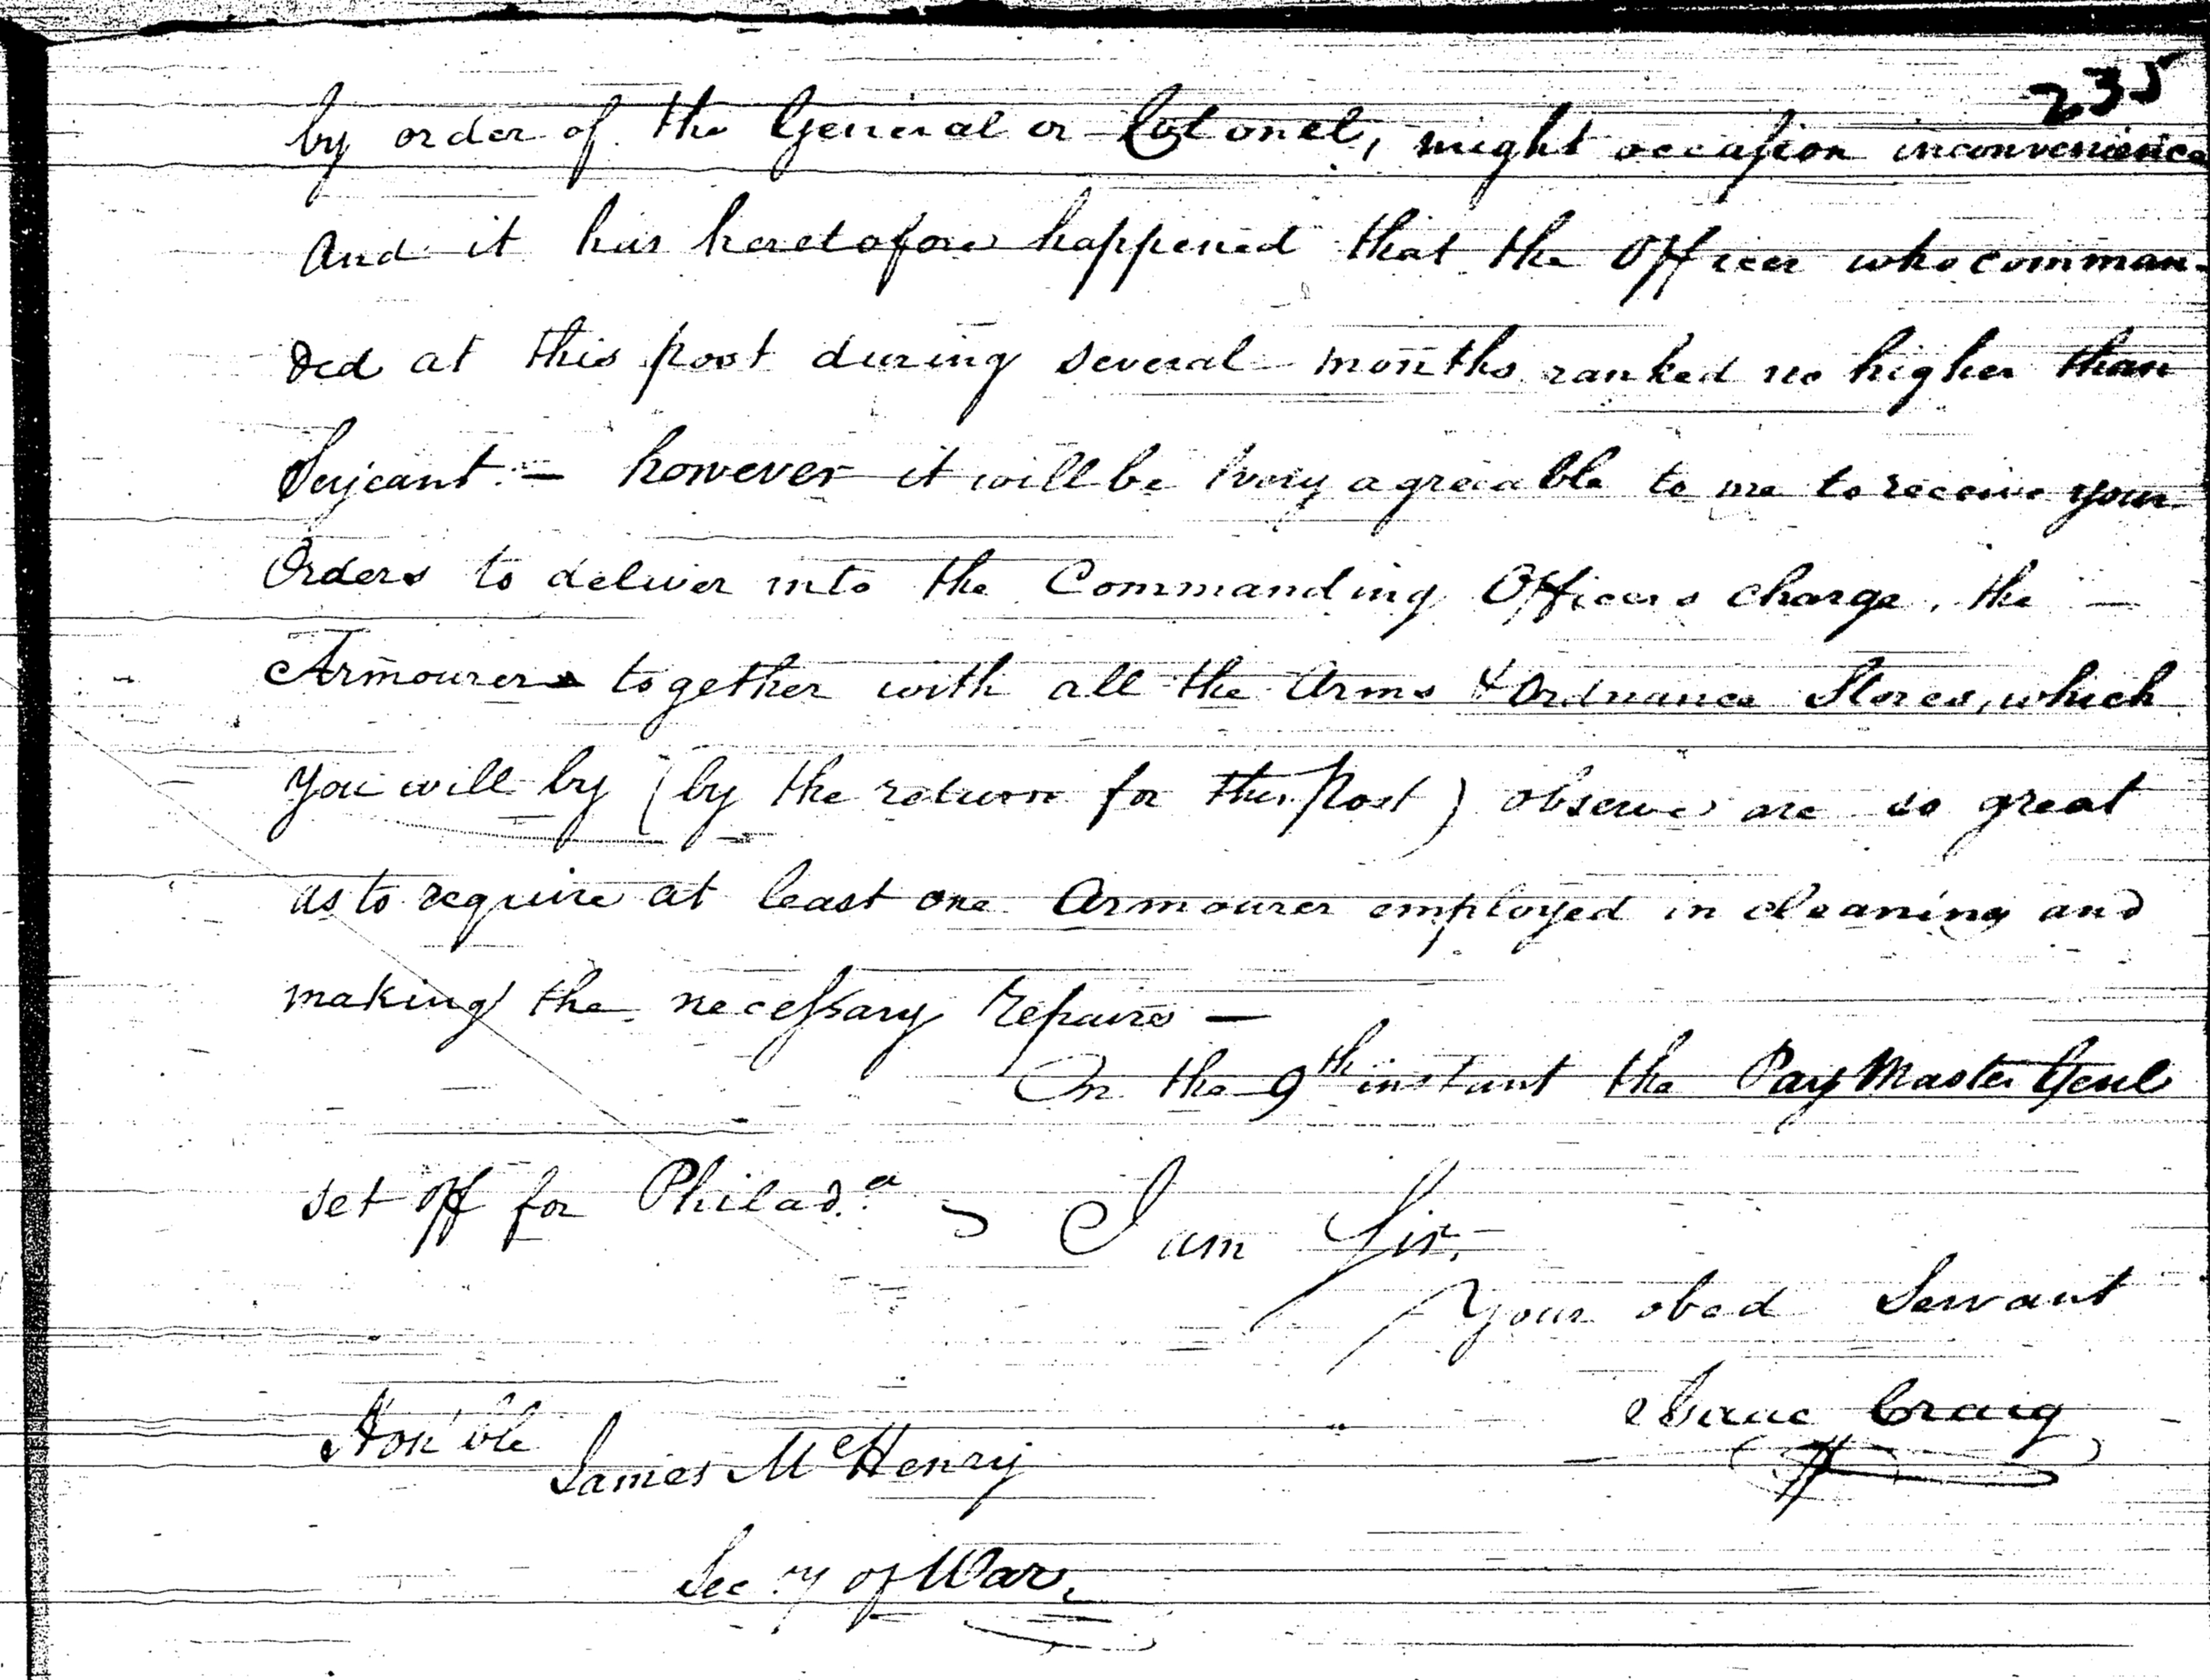 235
by order of the General or Colonel, might occasion inconvenience
And it has heretofore happened that the Officer who comman-
ded at this post during several months ranked no higher than
Serjeant. — however it will be very agreeable to me to receive your
Orders to deliver into the Commanding Officers charge, the —
Armourers together with all the Arms & Ordnance Stores, which
you will by (by the return for this Post) observe are so great
as to require at least one Armourer employed in cleaning and
making the necessary repairs —
On the 9th instant the Pay Master Genl
set off for Philada. I am Sir,
Your obed Servant
Isaac Craig
Hon'ble
James McHenry
Secy of War.